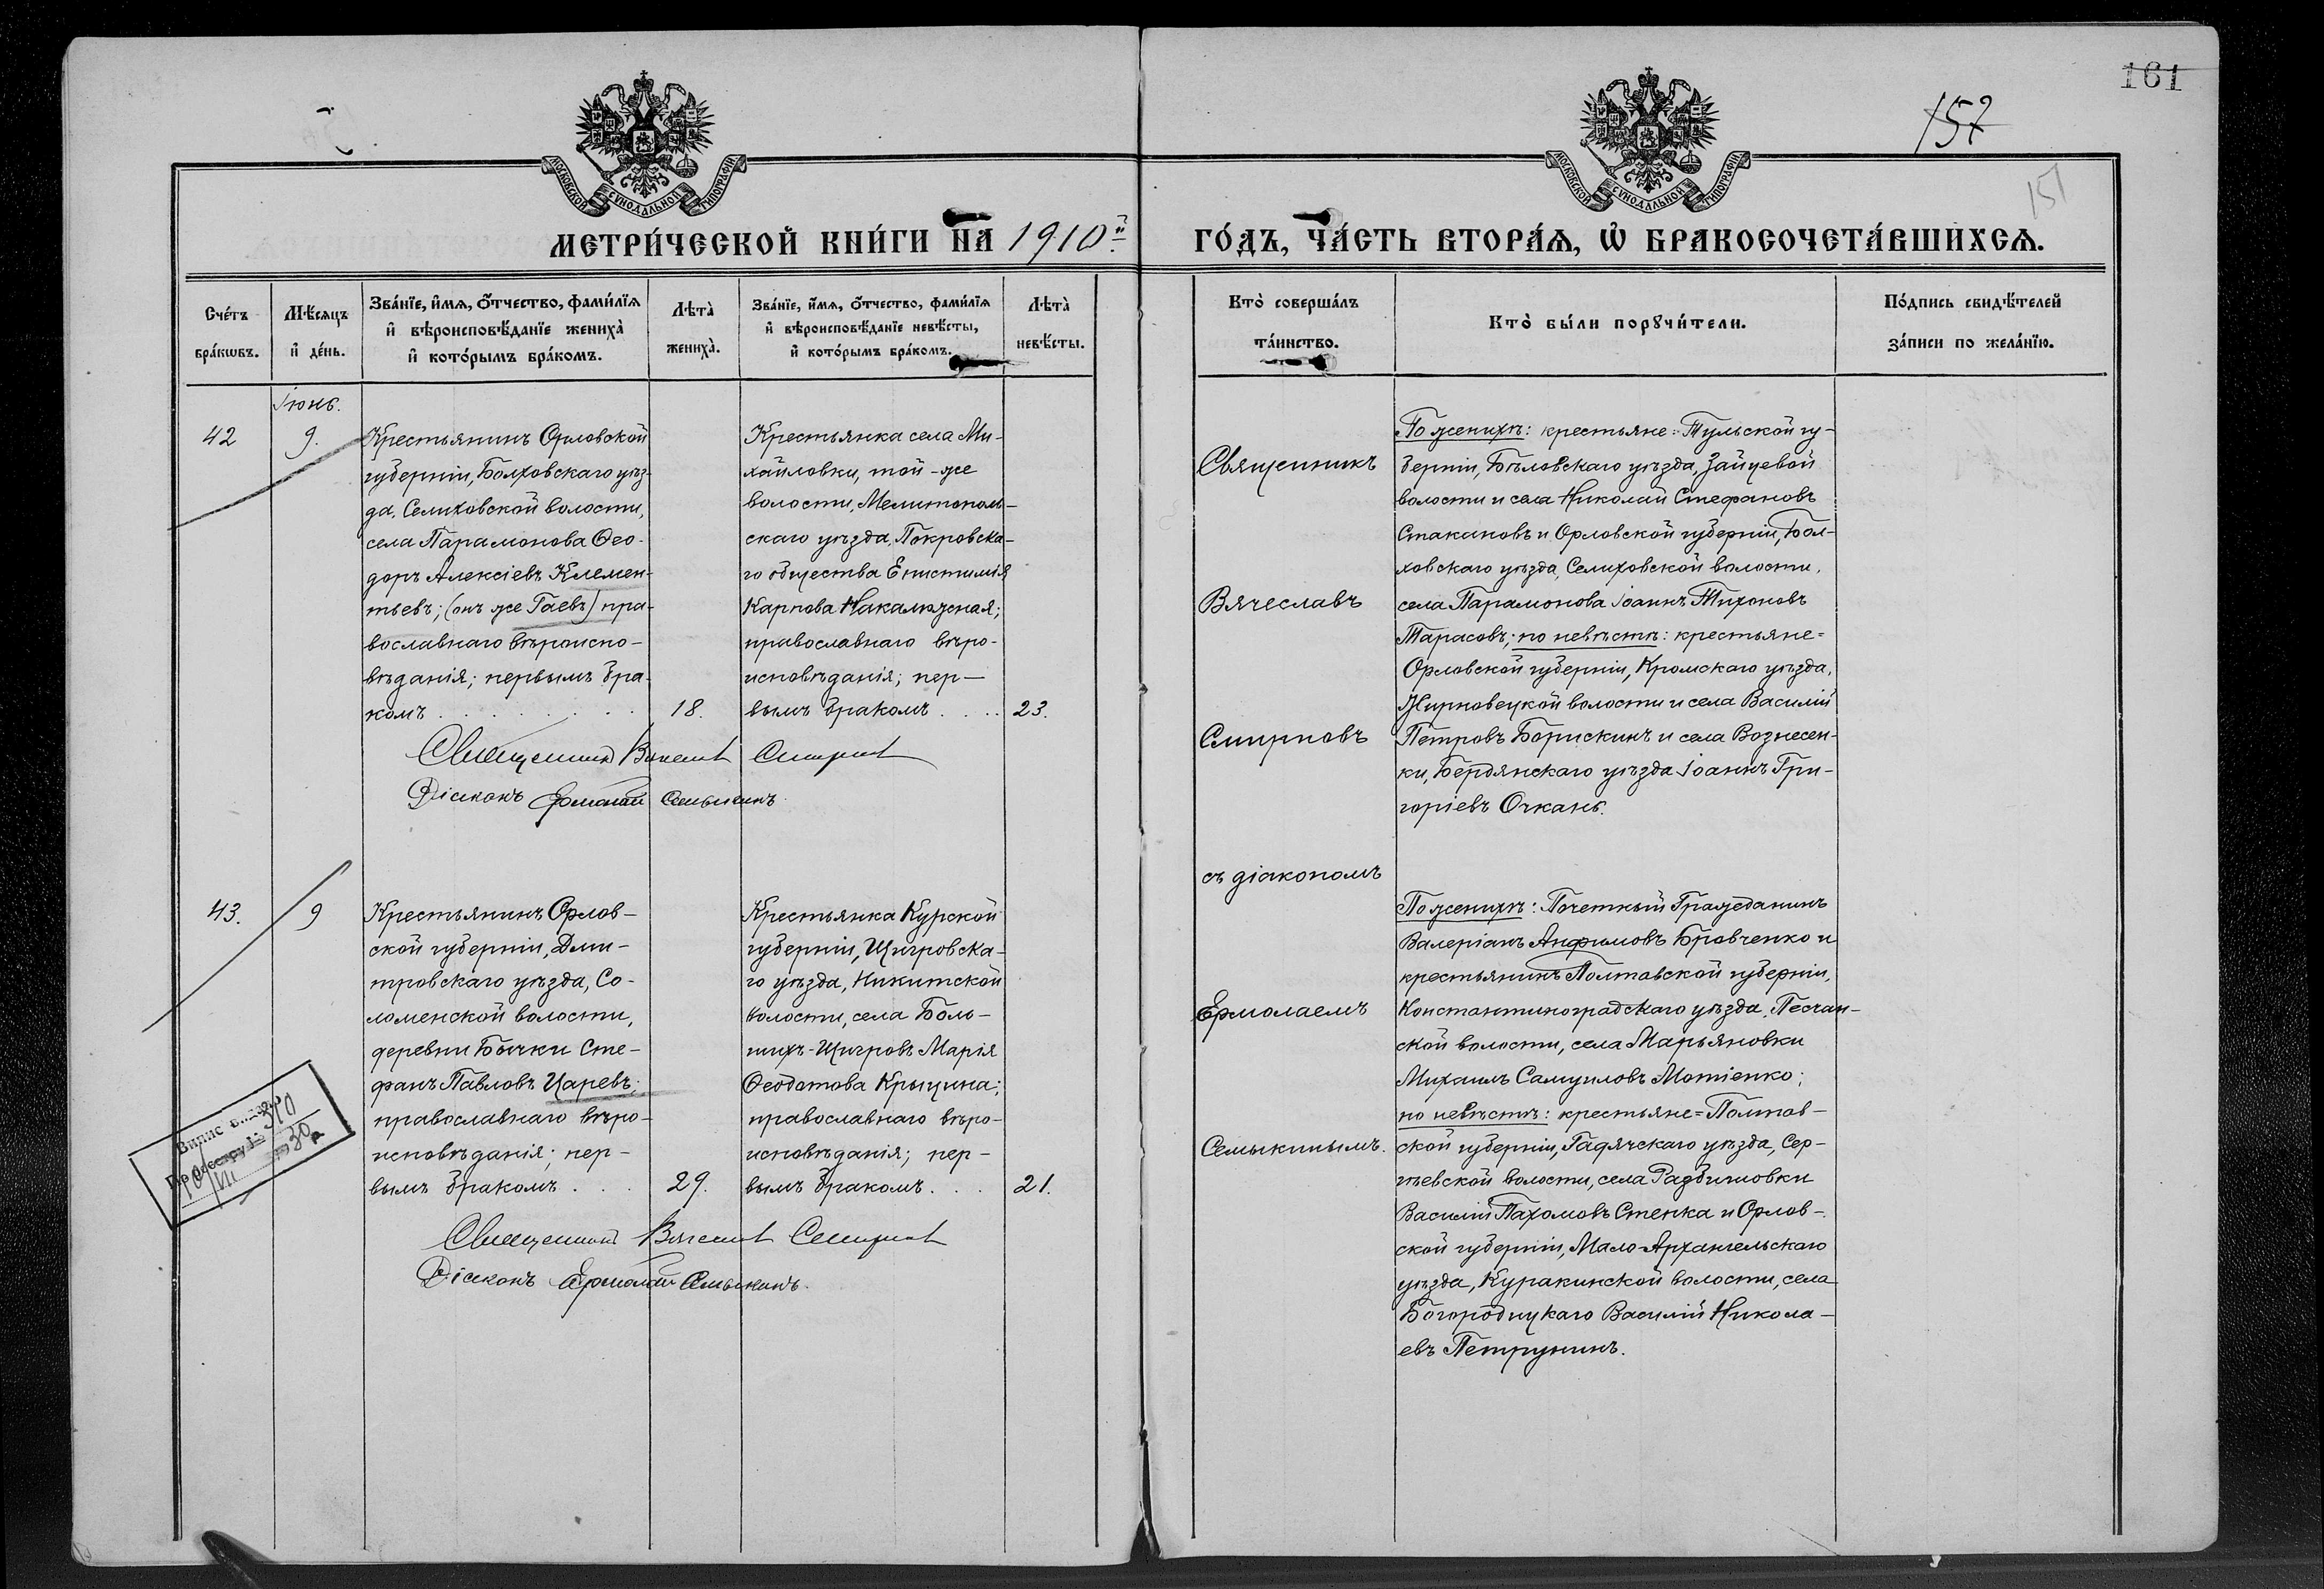 161
157
151
МОСКОВСКОЙ СѴНОДАЛЬНОЙ ТИПОГРАФІИ
МОСКОВСКОЙ СѴНОДАЛЬНОЙ ТИПОГРАФІИ
МЕТРИ́ЧЕСКОЙ КНИ́ГИ НА 1910й
ГО́ДЪ, ЧА́СТЬ ВТОРА́Ѧ, Ѿ БРАКОСОЧЕТА́ВШИХСѦ.
Сче́тъ бра́кѡвъ.
Мѣ́сяцъ и҆ де́нь.
Зва́нїе, и҆́мѧ, ѻ҆́тчество, фами́лїѧ и҆ вѣроисповѣ́данїе жениха̀ и҆ кото́рымъ бра́комъ.
Лѣта̀ жениха̀.
Зва́нїе, и҆́мѧ, ѻ҆́тчество, фами́лїѧ и҆ вѣроисповѣ́данїе невѣ́сты, и҆ кото́рымъ бра́комъ.
Лѣта̀ невѣ́сты.
Кто̀ соверша́лъ та́инство.
Кто̀ бы́ли порꙋчи́тели.
По́дпись свидѣ́телей за́писи по жела́нїю.
Іюнь.
42
9.
Крестьянинъ Орловской
губерніи, Болховскаго уѣз-
да, Селиховской волости,
села Парамонова Ѳео-
доръ Алексіевъ Клемен-
тьевъ; (онъ же Гаевъ) пра-
вославнаго вѣроиспо-
вѣданія; первымъ бра-
комъ . . . . . . . .
18.
Крестьянка села Ми-
хайловки, той-же
волости, Мелитополь-
скаго уѣзда, Покровска-
го общества Епистимія
Карпова Накалюжная;
православнаго вѣро-
исповѣданія; пер-
вымъ бракомъ . . . .
23.
Священникъ Вячеславъ Смирновъ
Діаконъ Ермолай Семыкинъ
Священникъ
Вячеславъ
Смирновъ
съ діакономъ
Ермолаемъ
Семыкинымъ.
По женихѣ: крестьяне: Тульской гу-
берніи, Бѣловскаго уѣзда, Зайцевой
волости и села Николай Стефановъ
Стакановъ и Орловской губерніи, Бол-
ховскаго уѣзда, Селиховской волости,
села Парамонова Іоаннъ Тихоновъ
Тарасовъ; по невѣстѣ: крестьяне=
Орловской губерніи, Кромскаго уѣзда,
Жирновецкой волости и села Василій
Петровъ Борискинъ и села Вознесен-
ки, Бердянскаго уѣзда Іоаннъ Гри-
горіевъ Очкань.
43.
9
Крестьянинъ Орлов-
ской губерніи, Дми-
тровскаго уѣзда, Со-
ломенской волости,
деревни Бычки Сте-
фанъ Павловъ Царевъ;
православнаго вѣро-
исповѣданія; пер-
вымъ бракомъ . . .
29.
Крестьянка Курской
губерніи, Щигровска-
го уѣзда, Никитской
волости, села Боль-
шихъ-Щигровъ Марія
Ѳеодотова Крыцина;
православнаго вѣро-
исповѣданія; пер-
вымъ бракомъ . . .
21.
Священникъ Вячеславъ Смирновъ
Діаконъ Ермолай Семыкинъ.
По женихѣ: Почетный Гражданинъ
Валеріанъ Анфимовъ Бровченко и
крестьянинъ Полтавской губерніи,
Константиноградскаго уѣзда, Песчан-
ской волости, села Марьяновки
Михаилъ Самуиловъ Мотіенко;
по невѣстѣ: крестьяне=Полтав-
ской губерніи, Гадячскаго уѣзда, Сер-
гѣевской волости, села Розбишовки
Василій Пахомовъ Стенка и Орлов-
ской губерніи, Мало-Архангельскаго
уѣзда, Куракинской волости, села
Богородицкаго Василій Никола-
евъ Петрунинъ.
Випис
310
30 р